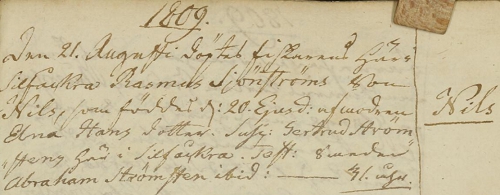 1809.
Den 21. Augusti döptes fiskarens här i
Silfåckra Rasmus Sjönströms Son
Nils, som föddes d: 20. Ejusd: af modren
Elna Hans dotter. Susc: Gertrud Strom-
stens här i Silfåckra. Test: Smeden
Abraham Strömsten ibid: —— 31. uhr.
Nils